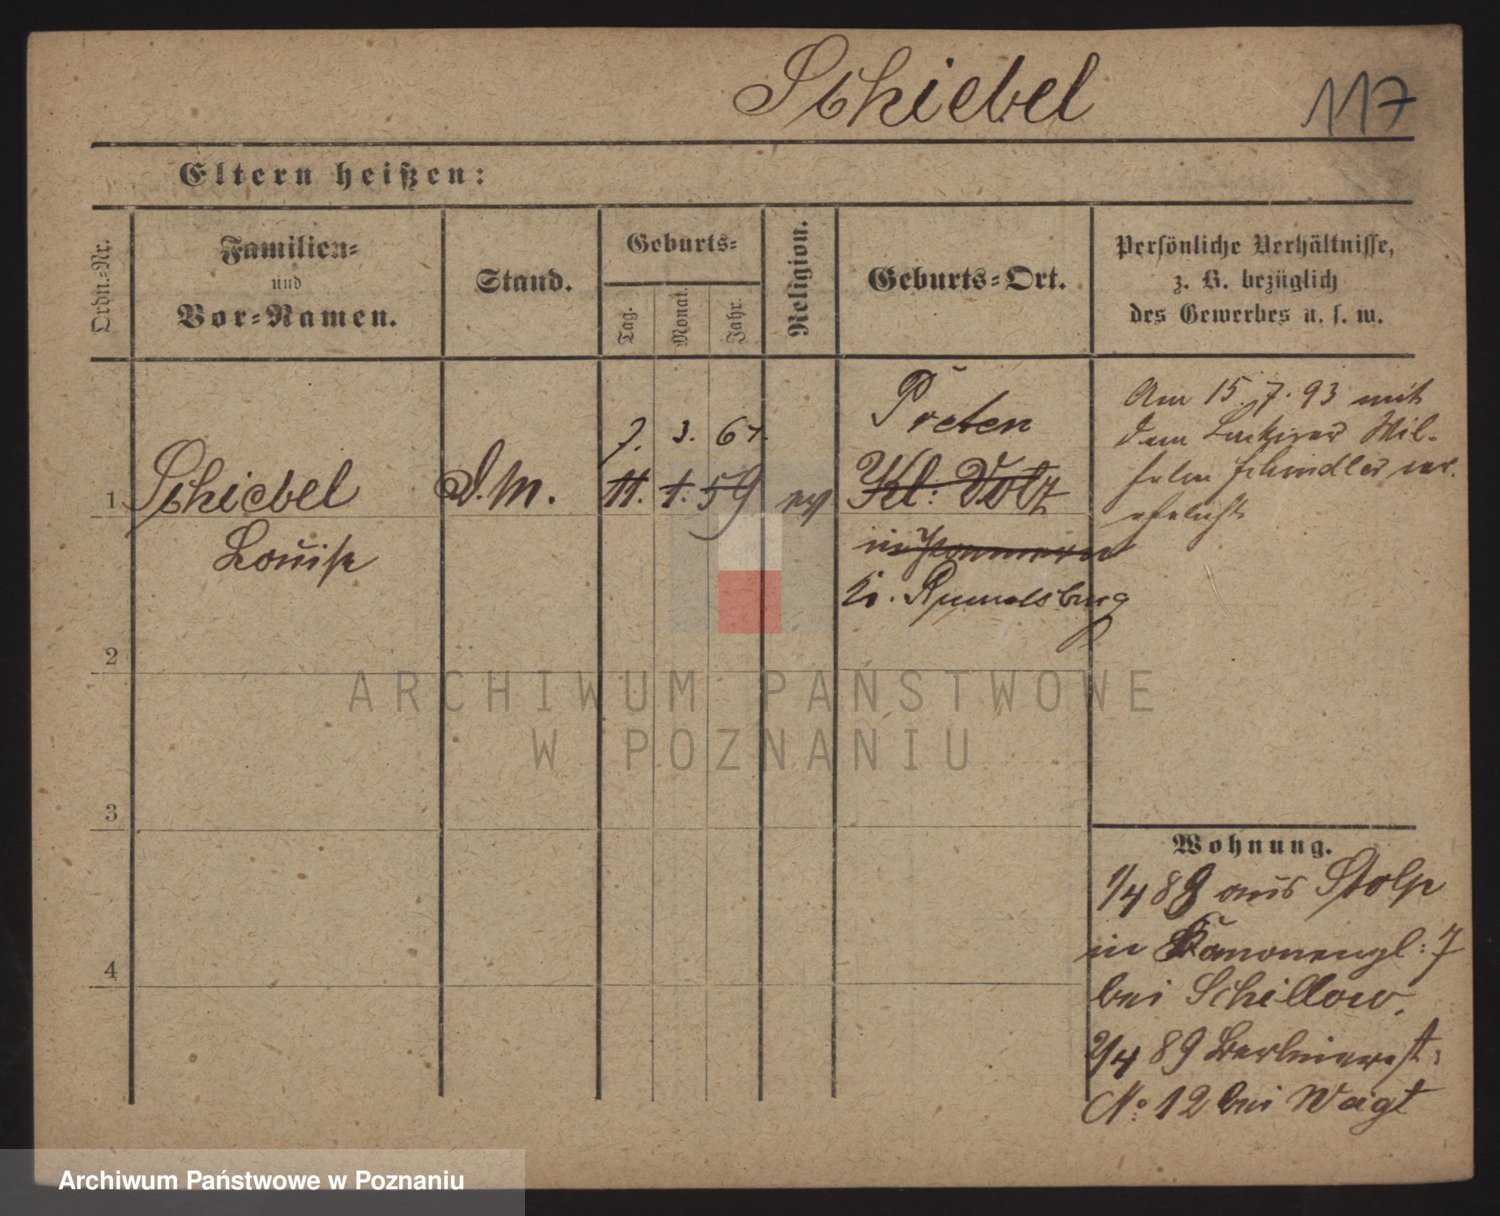 Schiebel 117
Eltern heißen:
Ordn.-Nr.
Familien-
und
Vor-Namen.
Stand.
Geburts-
Tag.
Monat.
Jahr.
Religion.
Geburts-Ort.
Persönliche Verhältnisse,
z. B. bezüglich
des Gewerbes u. s. w.
1
Schiebel
Louise
D.M.
7. 3. 67.
11. 1. 59
ev
Preten
Kl: Volz
in Pommern
Kr. Rummelsburg
Am 15.7.93 mit
dem Lackirer Wil-
helm Schindler ver-
ehelicht
2
3
4
Wohnung.
1/4 89 aus Stolp
in Kanonengl: 7
bei Schillow.
2/4 89 Berlinerst:
No 12 bei Waigt
ARCHIWUM PAŃSTWOWE
W POZNANIU
Archiwum Państwowe w Poznaniu